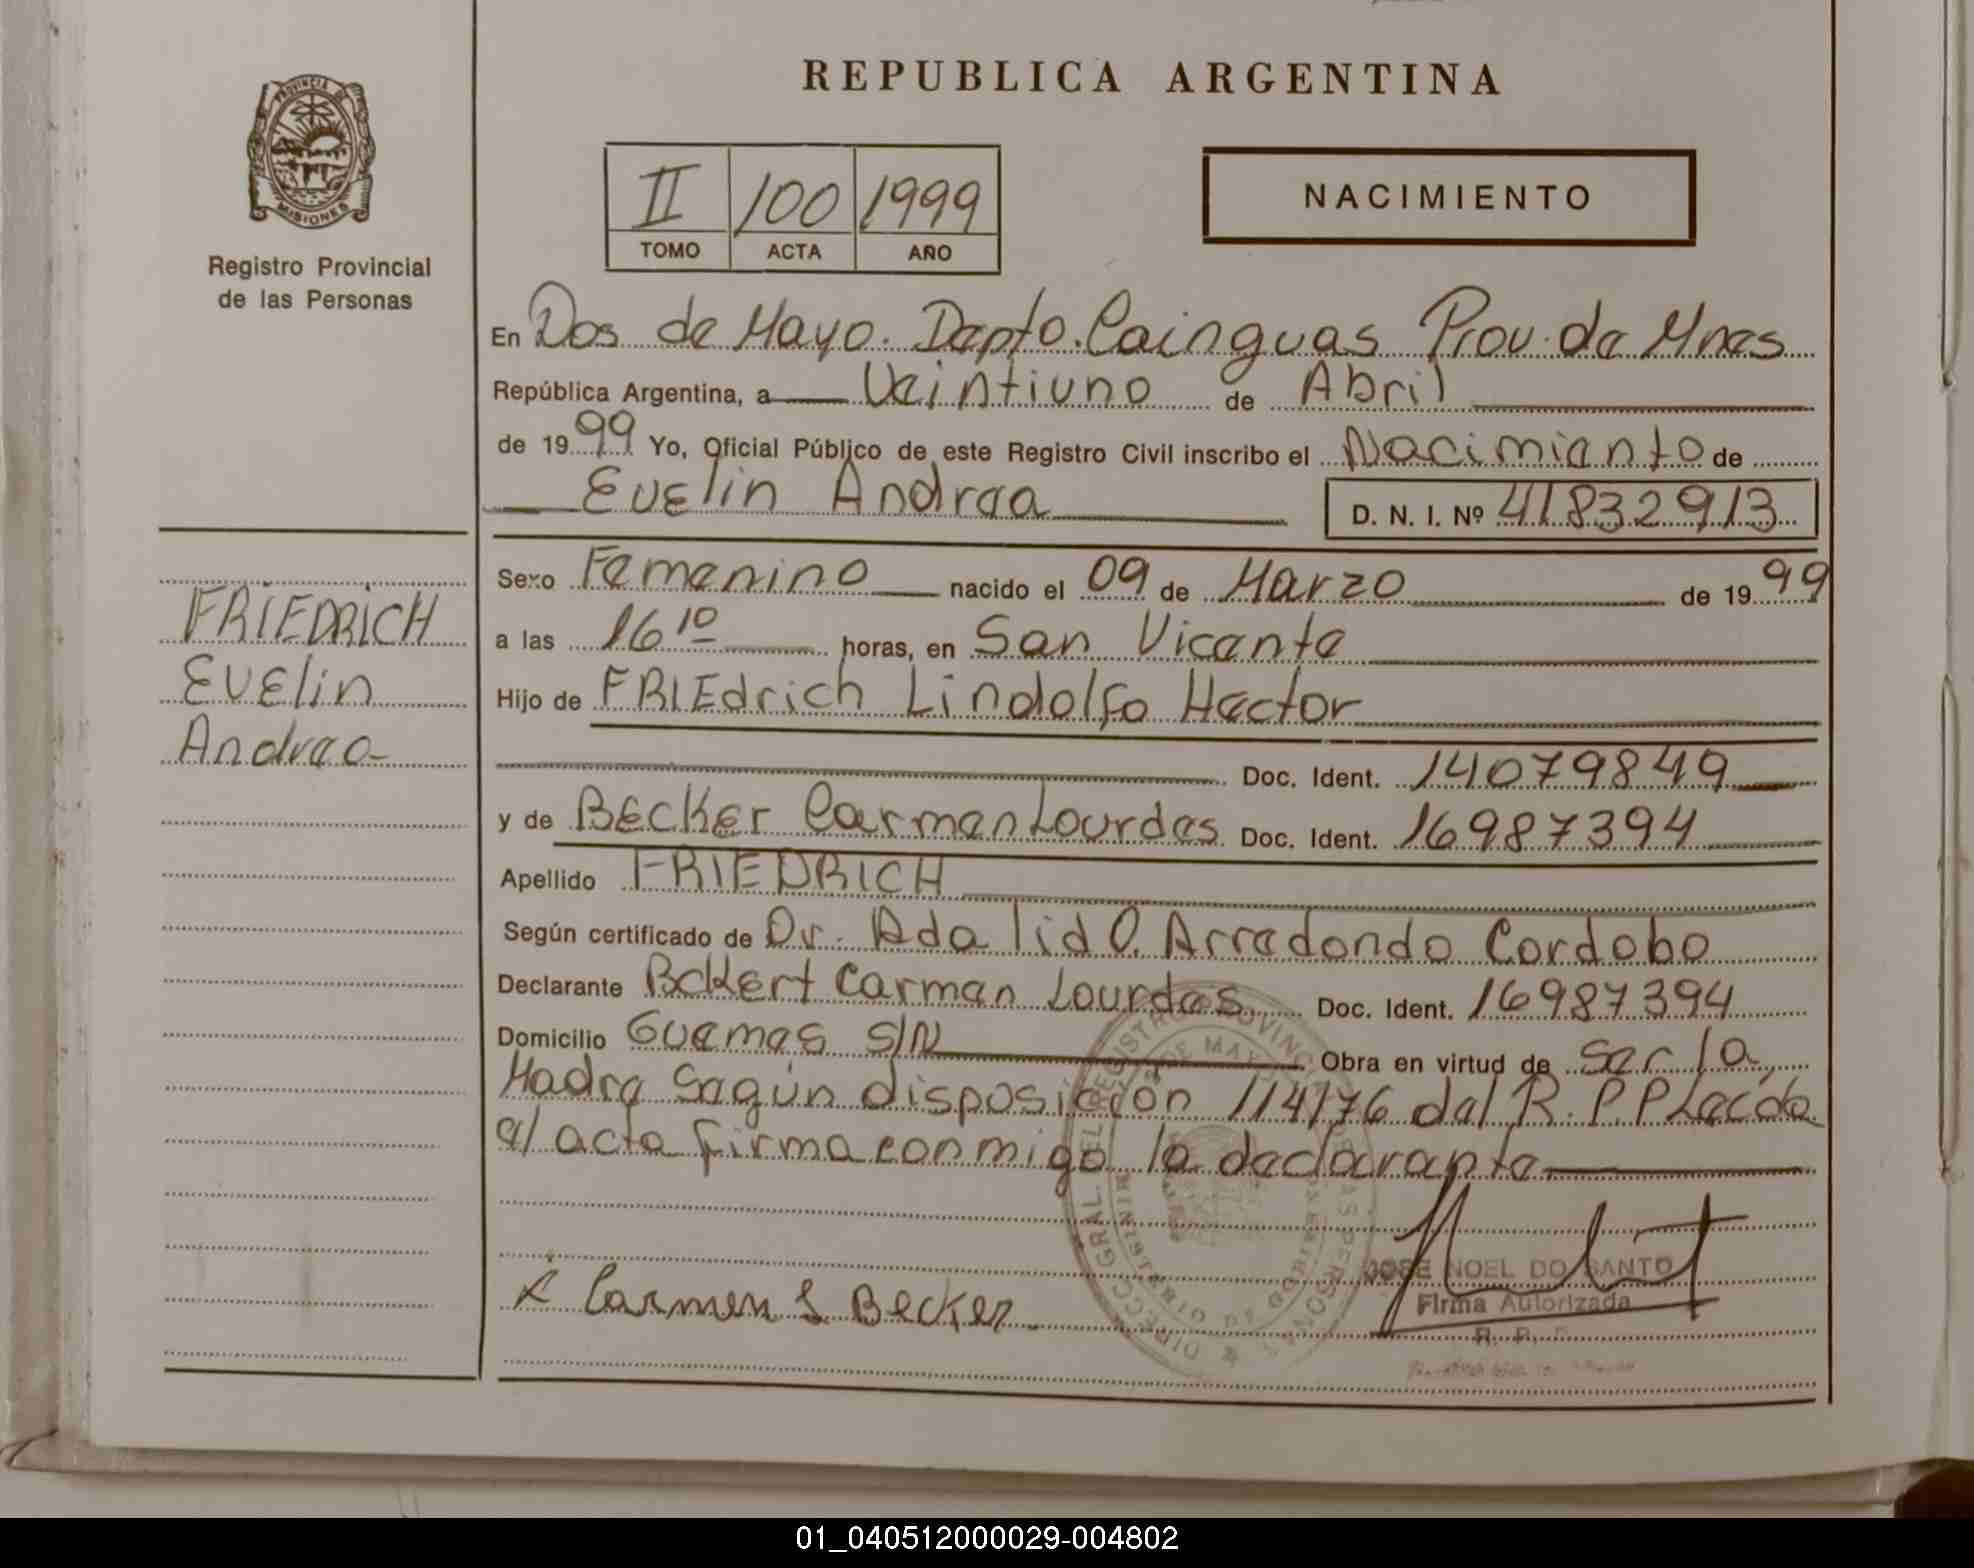 REPUBLICA ARGENTINA
PROVINCIA DE
MISIONES
Registro Provincial
de las Personas
II 100 1999
TOMO ACTA AÑO
NACIMIENTO
En Dos de Mayo. Depto. Cainguas Prov. de Mnes
República Argentina, a Veintiuno de Abril
de 1999 Yo, Oficial Público de este Registro Civil inscribo el Nacimiento de
Evelin Andrea D. N. I. Nº 41832913
Sexo Femenino nacido el 09 de Marzo de 1999
a las 16 10 horas, en San Vicente
Hijo de FRIEdrich Lindolfo Hector
Doc. Ident. 14079849
y de BEcKer Carmen Lourdes Doc. Ident. 16987394
Apellido FRIEDRICH
Según certificado de Dr. Adalid O. Arredondo Cordobo
Declarante BcKert Carmen Lourdes Doc. Ident. 16987394
Domicilio Guemes S/N Obra en virtud de ser la
Madre según disposición 114/76 del R.P.P Leída
el acta firma conmigo la declarante
FRIEDRICH
Evelin
Andrea
Carmen L Becker
JOSE NOEL DO SANTO
Firma Autorizada
R. P.
01_040512000029-004802